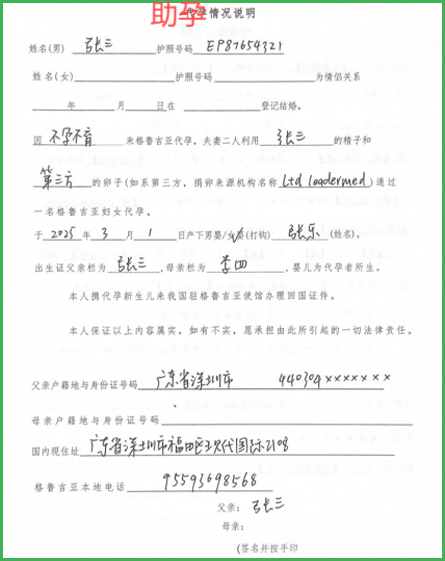 助孕
代孕情况说明
姓名(男) 张三 护照号码 EP87654321
姓名(女) 护照号码 为情侣关系
年 月 日在 登记结婚。
因 不孕不育 来格鲁吉亚代孕,夫妻二人利用 张三 的精子和
第三方 的卵子(如系第三方,捐卵来源机构名称 Ltd loadermed)通过
一名格鲁吉亚妇女代孕。
于 2025 年 3 月 1 日产下男婴/女婴(打钩) 张乐 (姓名)。
出生证父亲栏为 张三 ,母亲栏为 李四 ,婴儿为代孕者所生。
本人携代孕新生儿来我国驻格鲁吉亚使馆办理回国证件。
本人保证以上内容属实,如有不实,愿承担由此所引起的一切法律责任。
父亲户籍地与身份证号码 广东省深圳市 440304×××××××
母亲户籍地与身份证号码
国内现住址 广东省深圳市福田区 代国际2108
格鲁吉亚本地电话 95593698568
父亲: 张三
母亲:
(签名并按手印